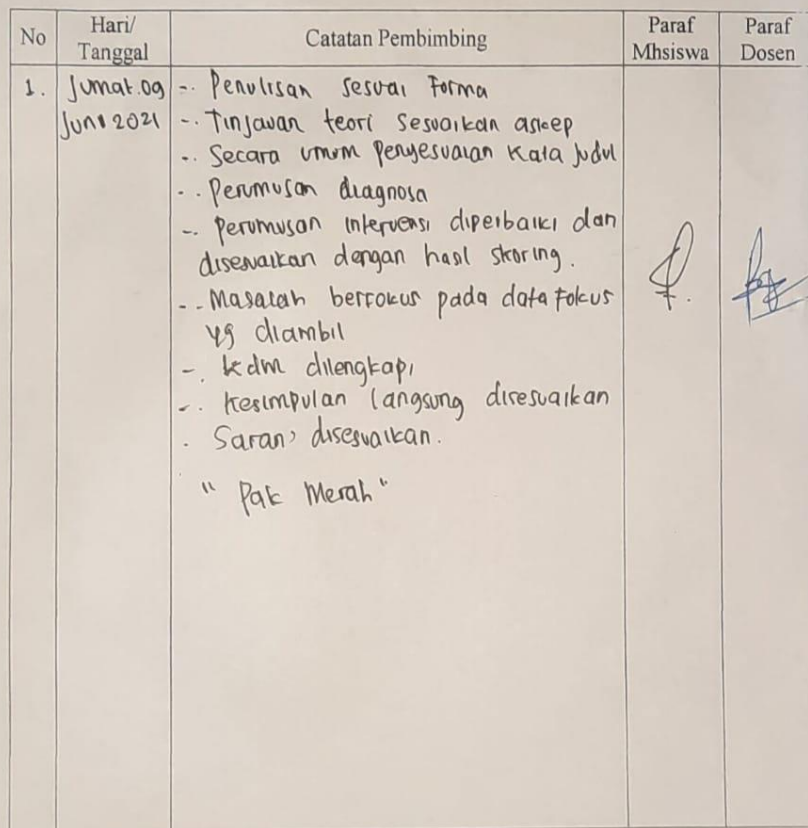 No
Hari/
Tanggal
Catatan Pembimbing
Paraf
Mhsiswa
Paraf
Dosen
1.
Jumat.09
Juni 2021
-. Penulisan sesuai Forma
-. Tinjauan teori sesuaikan askep
-. Secara umum penyesuaian kata judul
-. Perumusan diagnosa
-. Perumusan intervensi diperbaiki dan
disesuaikan dengan hasil skoring.
-. Masalah berfokus pada data Fokus
yg diambil
-. kdm dilengkapi
-. Kesimpulan langsung disesuaikan
. Saran² disesuaikan.
" Pak Merah "